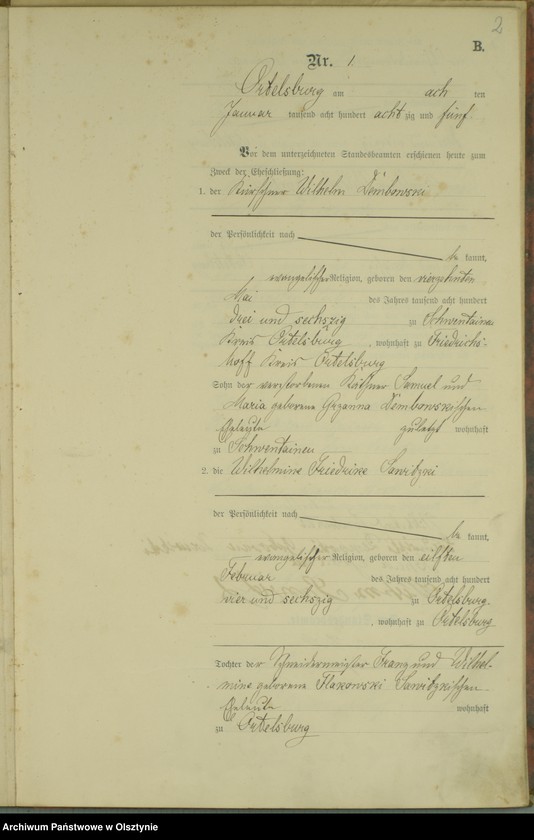 2
B.
Nr. 1.
Ortelsburg am ach ten
Januar tausend acht hundert achtzig und fünf.
Vor dem unterzeichneten Standesbeamten erschienen heute zum
Zweck der Eheschließung:
1. der Kürschner Wilhelm Dembowski
der Persönlichkeit nach
be kannt,
evangelischer Religion, geboren den vierzehnten
Mai des Jahres tausend acht hundert
drei und sechszig zu Schwentainen
Kreis Ortelsburg, wohnhaft zu Friedrichs-
hoff Kreis Ortelsburg
Sohn der verstorbenen Käthner Samuel und
Maria geborene Dembowskischen
Eheleute zuletzt wohnhaft
zu Schwentainen
2. die Wilhelmine Friedrike Sawitzki
der Persönlichkeit nach
be kannt,
evangelischer Religion, geboren den eilften
Februar des Jahres tausend acht hundert
vier und sechszig zu Ortelsburg.
, wohnhaft zu Ortelsburg
Tochter der Schneidermeister Franz und Wilhel-
mine geborene Sawitzkischen
Eheleute wohnhaft
zu Ortelsburg
Archiwum Państwowe w Olsztynie